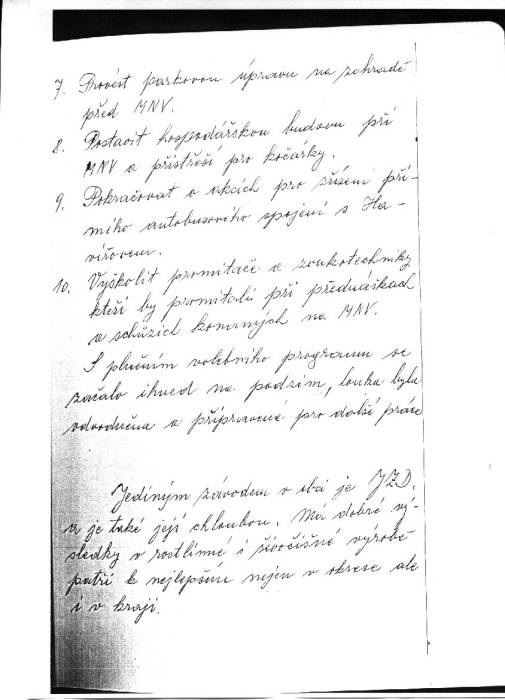 7. Provést parkovou úpravu na zahradě
před MNV.
8. Postavit hospodářskou budovu při
MNV a přístřeší pro kočárky.
9. Pokračovat v akcích pro zřízení pří-
mého autobusového spojení s Ha-
vířovem.
10. Vyškolit promítače a zvukotechniky
kteří by promítali při přednáškách
a schůzích konaných na MNV.
S plněním volebního programu se
začalo ihned na podzim, louka byla
odvodněna a připravena pro další práce
Jediným závodem v obci je JZD.
a je také její chloubou. Má dobré vý-
sledky v rostlinné i živočišné výrobě
patří k nejlepším nejen v okrese ale
i v kraji.